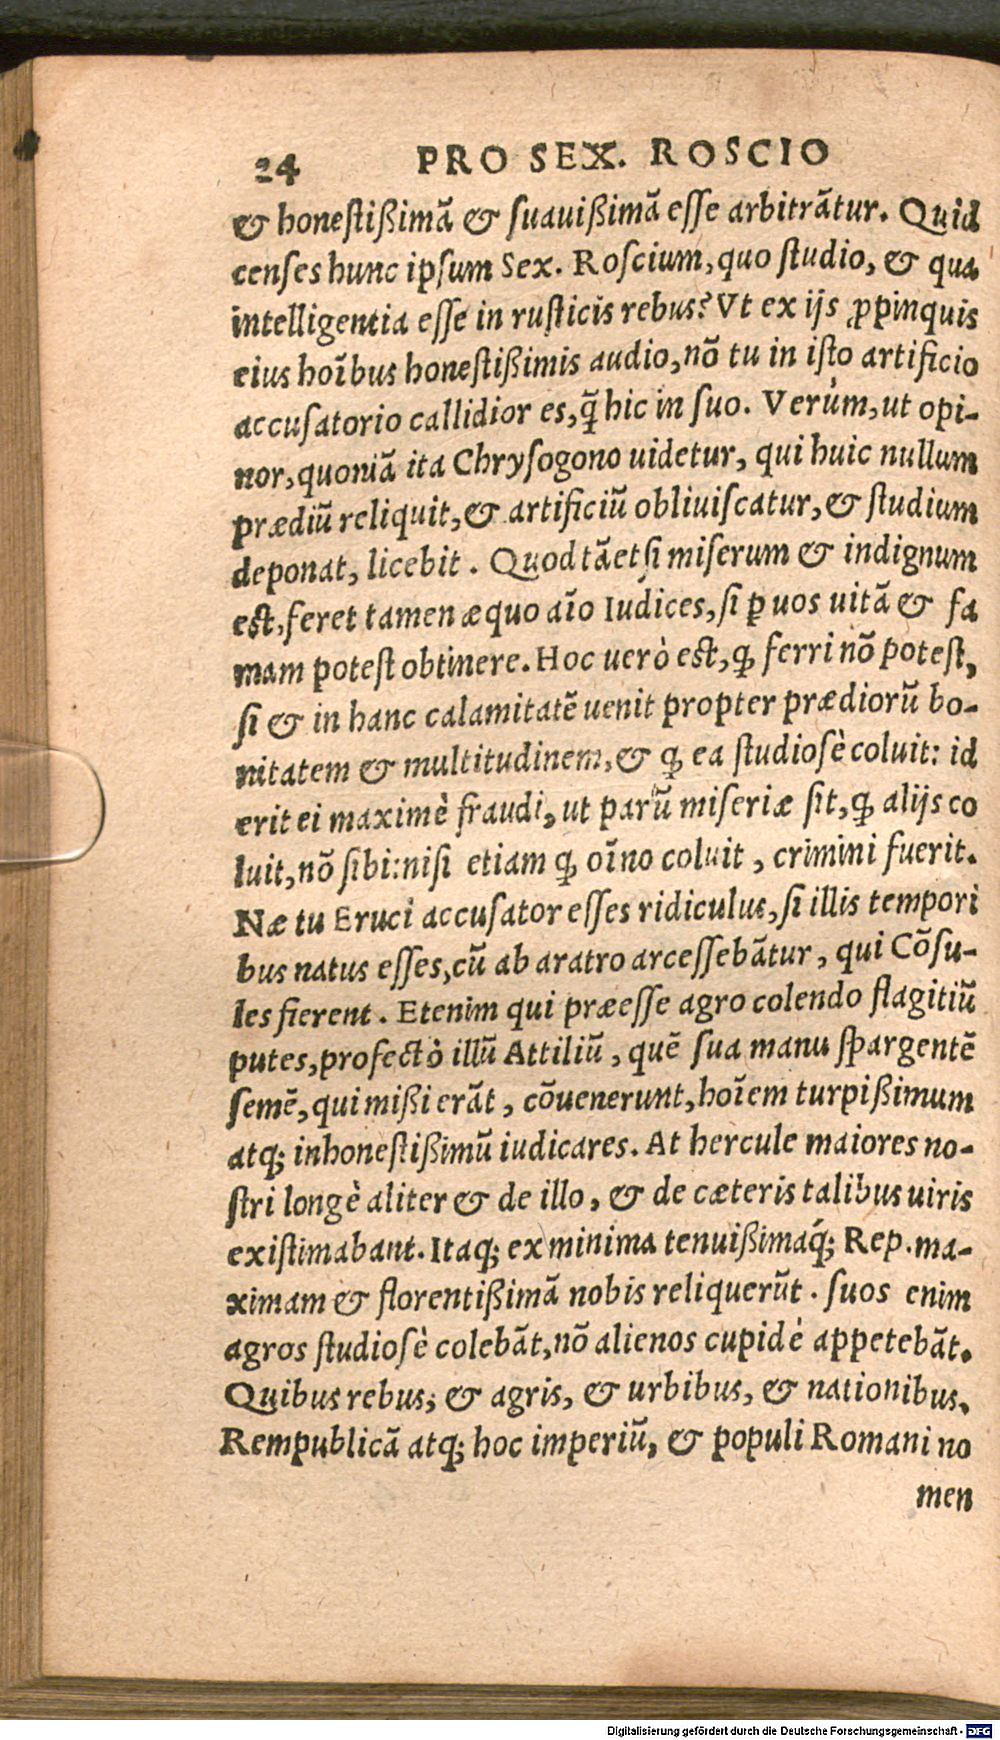 24 PRO SEX. ROSCIO
& honestißimā & suauißimā esse arbitrātur. Quid
censes hunc ipsum Sex. Roscium, quo studio, & qua
intelligentia esse in rusticis rebus? Vt ex ijs ꝓpinquis
eius hoībus honestißimis audio, nō tu in isto artificio
accusatorio callidior es, q̄ hic in suo. Verùm, ut opi-
nor, quoniā ita Chrysogono uidetur, qui huic nullum
prædiū reliquit, & artificiū obliuiscatur, & studium
deponat, licebit. Quod tāetsi miserum & indignum
est, feret tamen æquo aīo Iudices, si ꝑ uos uitā & fa
mam potest obtinere. Hoc uerò est, ꝙ ferri nō potest,
si & in hanc calamitatē uenit propter prædiorū bo-
nitatem & multitudinem, & ꝙ ea studiosè coluit: id
erit ei maximè fraudi, ut parū miseriæ sit, ꝙ alijs co
luit, nō sibi: nisi etiam ꝙ oīno coluit, crimini fuerit.
Næ tu Eruci accusator esses ridiculus, si illis tempori
bus natus esses, cū ab aratro arcessebātur, qui Cōsu-
les fierent. Etenim qui præesse agro colendo flagitiū
putes, profectò illū Attiliū, quē sua manu spargentē
semē, qui mißi erāt, cōuenerunt, hoīem turpißimum
atq; inhonestißimū iudicares. At hercule maiores no-
stri longè aliter & de illo, & de cæteris talibus uiris
existimabant. Itaq; ex minima tenuißimaq́; Rep. ma-
ximam & florentißimā nobis reliquerūt. suos enim
agros studiosè colebāt, nō alienos cupidè appetebāt.
Quibus rebus; & agris, & urbibus, & nationibus,
Rempublicā atq; hoc imperiū, & populi Romani no
men
Digitalisierung gefördert durch die Deutsche Forschungsgemeinschaft - DFG